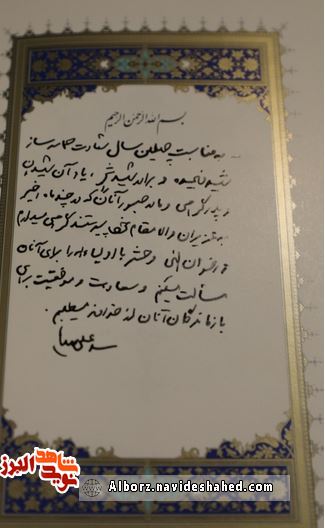 بسم الله الرحمن الرحیم
به مناسبت چهلمین سال شهادت حماسه ساز
شهید و برادر شهیدش، یاد آن شهیدان
و پدر گرامی و مادر صبور آنان که در چند ماه اخیر
به عزیران والا مقام خود پیوستند گرامی میدارم
و رضوان الهی و حشر با اولیاء او را برای آنان
مسألت میکنم و سعادت و موفقیت برای
بازماندگان آنان از خداوند میطلبم.
سید علی
نوید شاهد البرز
Alborz.navideshahed.com